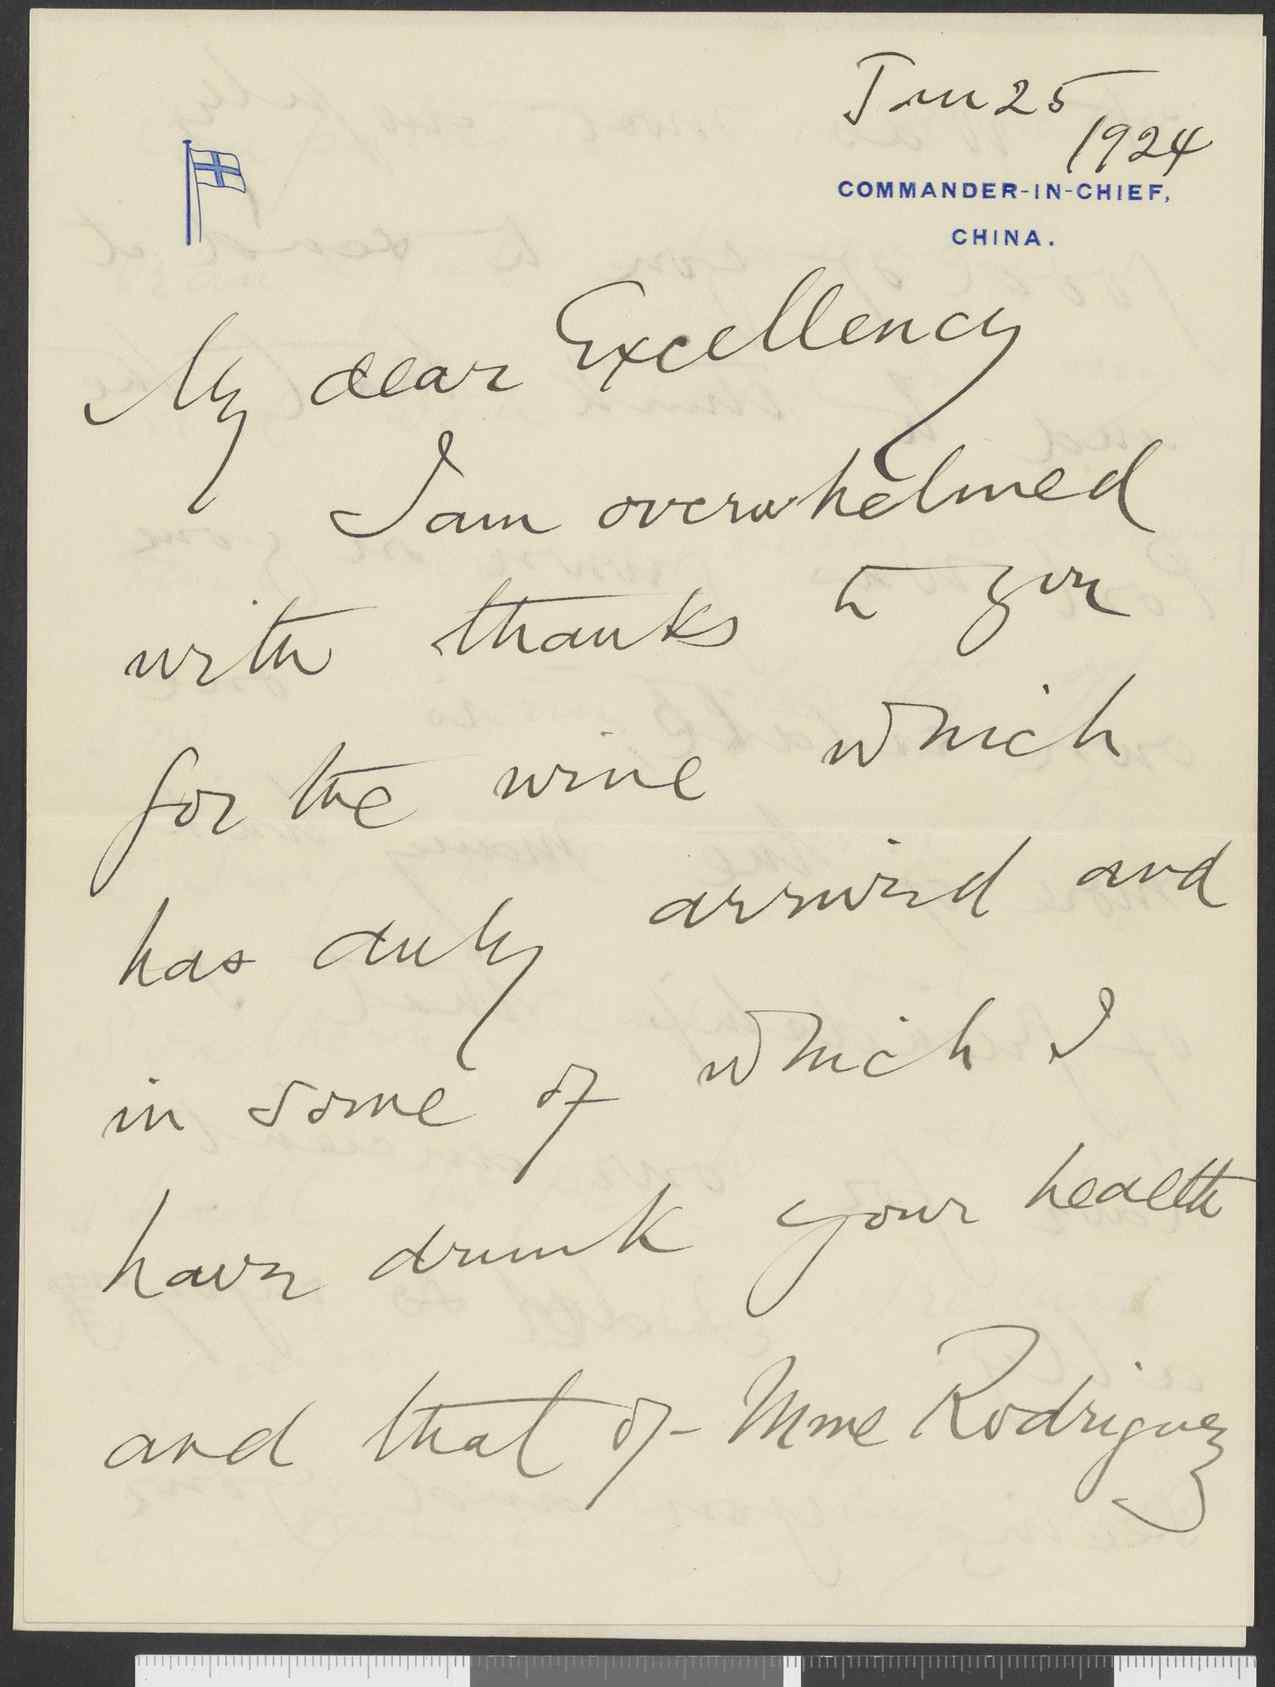 Jan 25
1924
COMMANDER-IN-CHIEF,
CHINA.
My dear Excellency
I am overwhelmed
with thanks to you
for the wine which
has duly arrived and
in some of which I
have drunk your health
and that of Mme Rodriguez